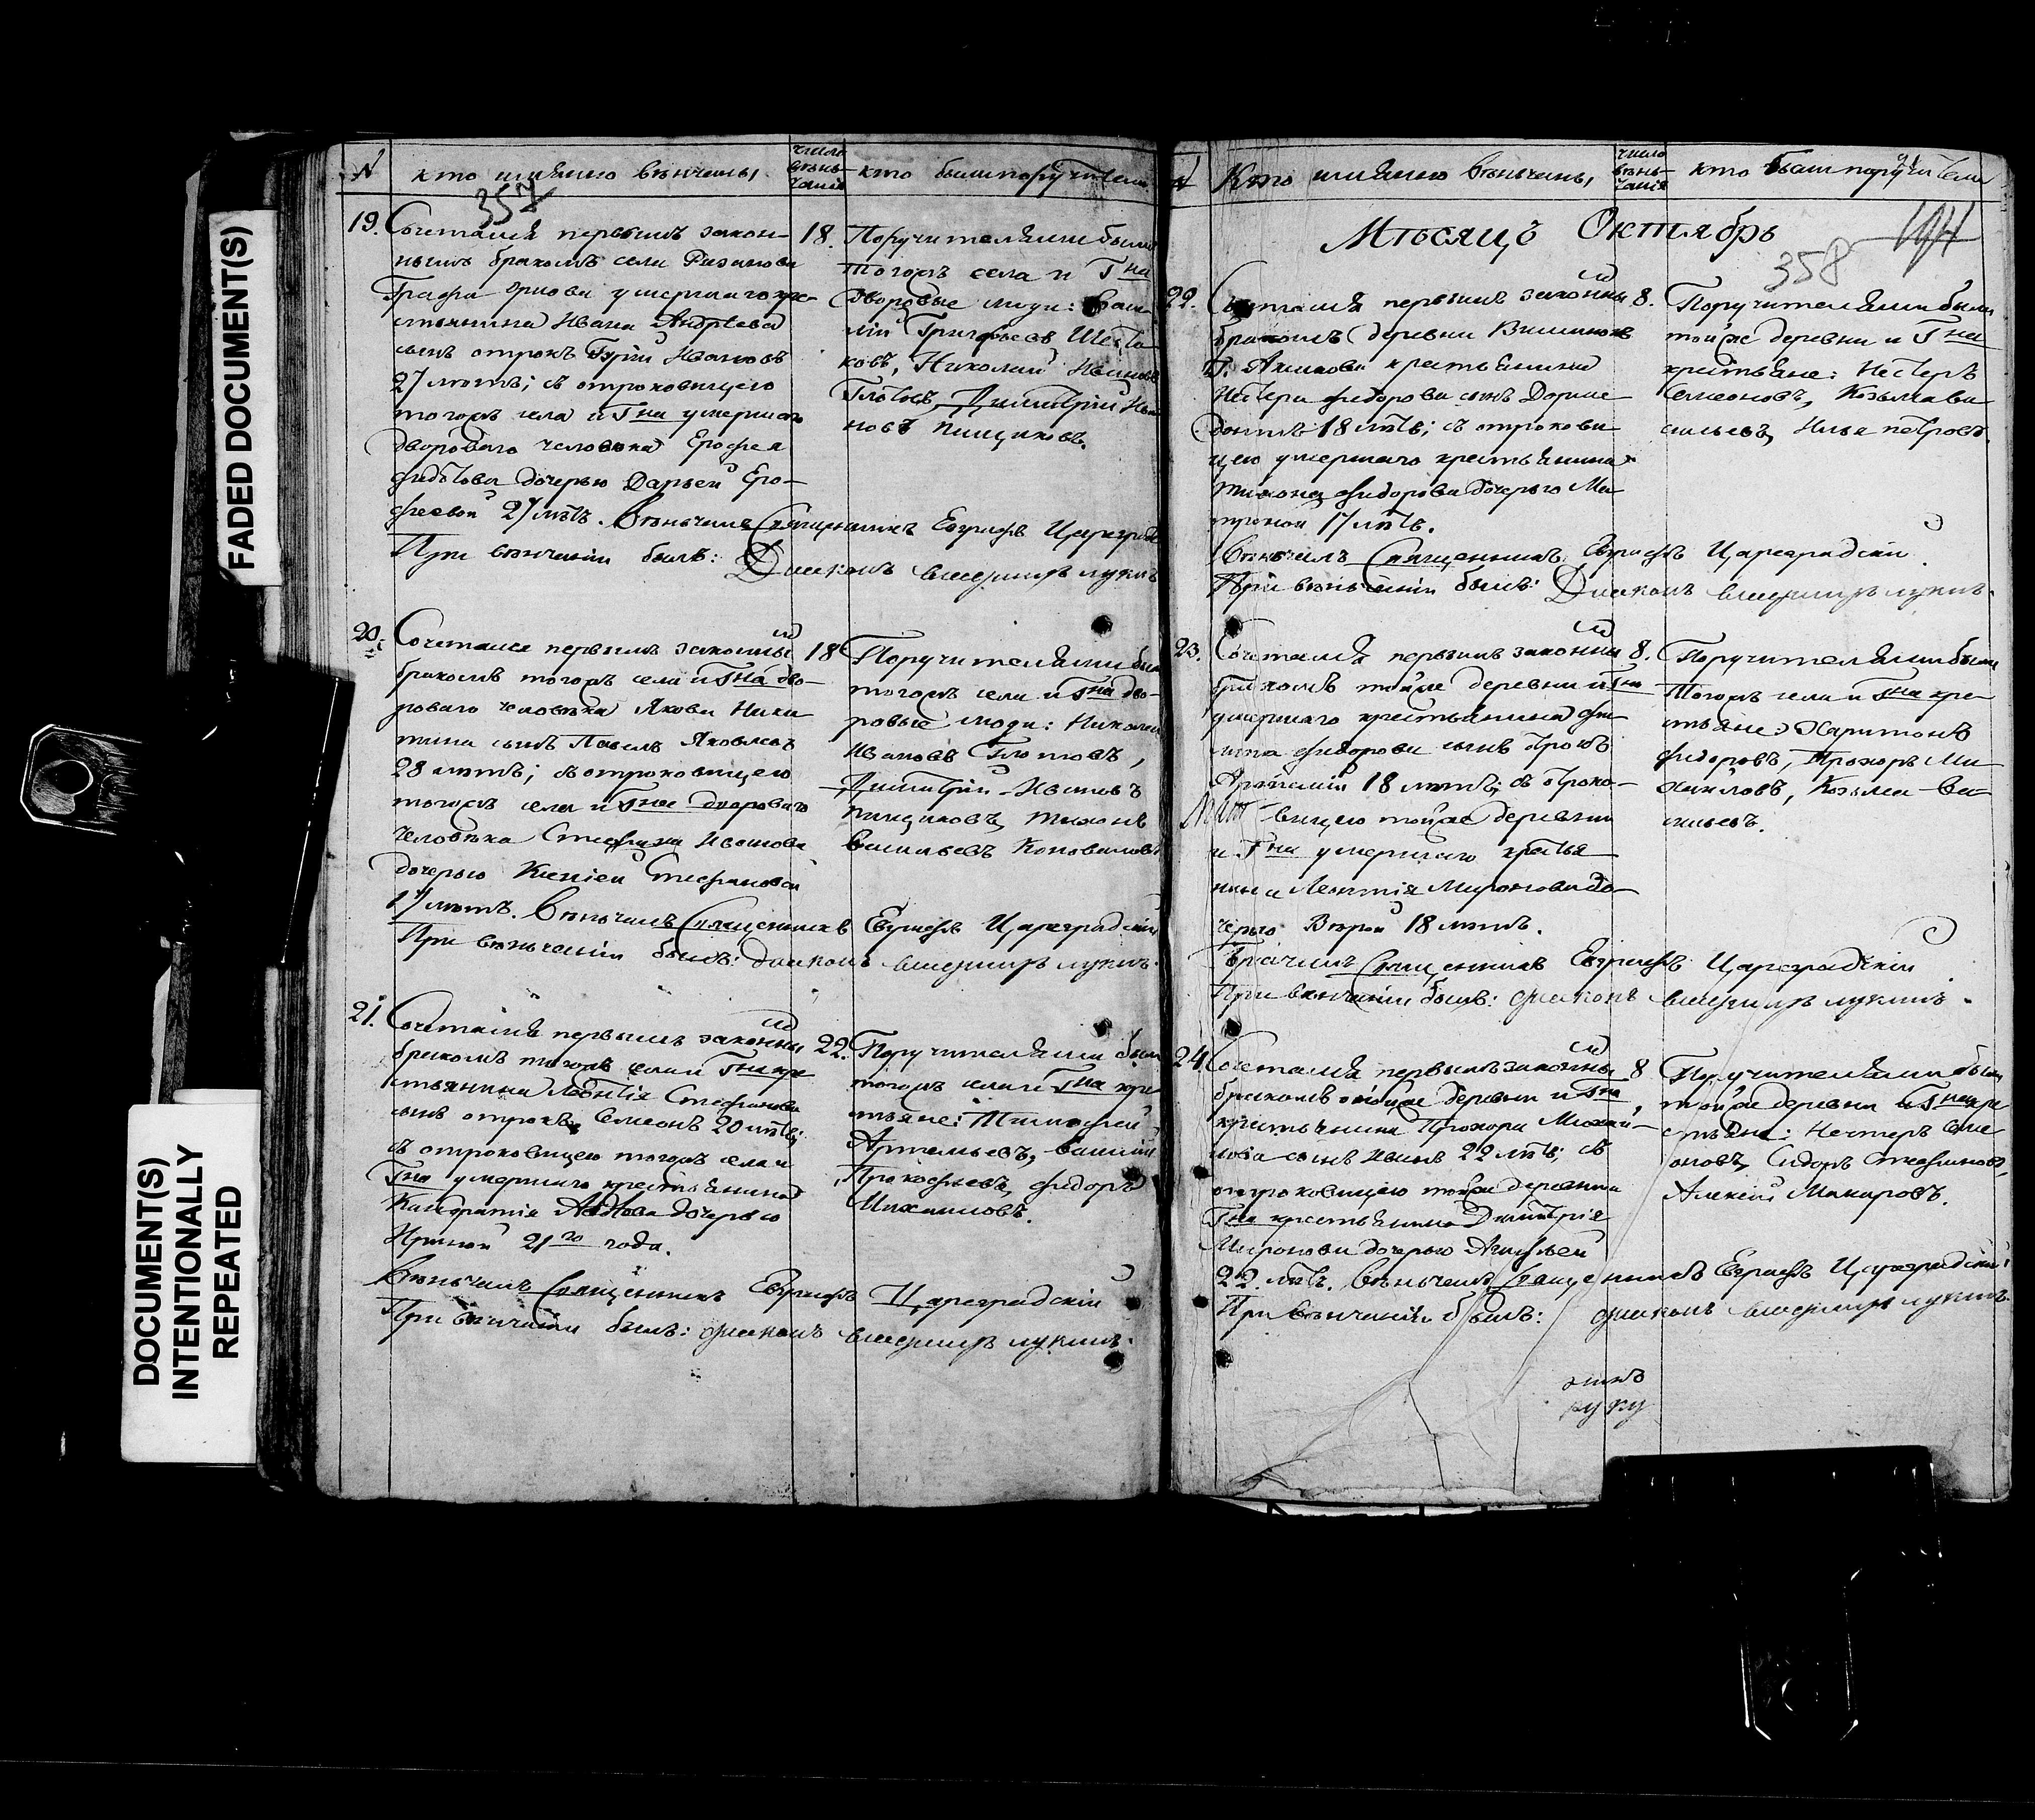 FADED DOCUMENT(S)
DOCUMENT(S)
INTENTIONALLY
REPEATED
№
кто имянно венчены
число
вѣнь-
чанія
кто были поручители
357
19.
Сочетался первымъ закон-
нымъ бракомъ села Рязанова
Графа Орлова умершаго кре-
стьянина Ивана Андреева
сынъ отрокъ Гурій Ивановъ
27 лѣтъ; съ отроковицею
тогожъ села и Гна умершаго
двороваго человека Ерофея
дочерью Дарьей Еро-
феевой 27 лѣтъ. Веньчалъ Священникъ Евграфъ Цареград
При венчаніи былъ: Диаконъ Владимиръ Лукинъ
18.
Поручителями были
тогожъ села и Гна
дворовые люди: Васи
лій Григорьевъ Шеста
ковъ, Николай Ивановъ
Глотовъ, Димитрій Ива
новъ Пищиковъ.
20.
Сочетался первымъ законны
мъ
бракомъ тогожъ села и Гна дво-
роваго человека Якова Ники
тина сынъ Павелъ Яковлевъ
28 лѣтъ; съ отроковицею
тогожъ села и Гна двороваго
человека Стефана Иванова
дочерью Ксеніей Стефановой
17 лѣтъ. Веньчалъ Священникъ Евграфъ Цареградскій
При веньчаніи былъ: диаконъ Владимиръ Лукинъ.
18
Поручителями были
тогожъ села и Гна дво-
ровые люди: Николай
Ивановъ Глотовъ,
Димитрій Ивановъ
Пищиковъ, Тихонъ
Васильевъ Коноваловъ
21.
Сочетался первымъ законны
мъ
бракомъ тогожъ села и Гна кре
стьянина Леонтія Стефанова
сынъ отрокъ Семеонъ 20 лѣтъ;
съ отроковицею тогожъ села и
Гна умершаго крестьянина
Кандратія дочерью
Ириной 21го года.
Веньчалъ Священникъ Евграфъ Цареградскій
При венчаніи былъ: диаконъ Владимиръ Лукинъ.
22.
Поручителями были
тогожъ села и Гна кре
стьяне: Тимофей
Артемьевъ, Василій
Прокофьевъ, Федоръ
Михаиловъ.
№
Кто имянно веньчены
число
вѣнь-
чанія
кто были поручители
Мѣсяцъ Октябрь
194
358
22.
Сочетался первымъ законны
мъ
бракомъ деревни Вишенокъ
Г. Акимова крестьянина
Нестера Федорова сынъ Дорме
донтъ 18 лѣтъ; съ отрокови
цею умершаго крестьянина
Тихона Федорова дочерью Ма
троной 17 лѣтъ.
Веньчалъ Священникъ Евграфъ Цареградскій
При веньчаніи былъ: Диаконъ Владимиръ Лукинъ.
8.
Поручителями были
тойже деревни и Гна
крестьяне: Нестеръ
Семеоновъ, Козьма Ва
сильевъ, Илья Петровъ.
23.
Сочетался первымъ законны
мъ
бракомъ тойже деревни и Гна
умершаго крестьянина Фи
липа Федорова сынъ отрокъ
18 лѣтъ; съ отроко-
вицею тойже деревни
и Гна умершаго крестья
нина Леонтія Миронова до-
черью Верой 18 лѣтъ.
Венчалъ Священникъ Евграфъ Цареградскій
При венчаніи былъ: диаконъ Владимиръ Лукинъ.
8.
Поручителями были
тогожъ села и Гна кре-
стьяне: Харитонъ
Федоровъ, Прохоръ Ми
хаиловъ, Козьма Ва-
сильевъ.
24.
Сочетался первымъ законны
мъ
бракомъ тойже деревни и Гна
крестьянина Прохора Михаи-
лова сынъ Иванъ 22 лѣтъ; съ
отроковицею тойже деревни
Гна крестьянина Димитрія
Миронова дочерью Агафьей
22 лѣтъ. Веньчалъ Священникъ Евграфъ Цареградскій
При венчаніи былъ: диаконъ Владимиръ Лукинъ.
8
Поручителями были
тойже деревни и Гна кре
стьяне: Нестеръ Семе
оновъ, Сидоръ Стефановъ,
Алексѣй Макаровъ.
руку